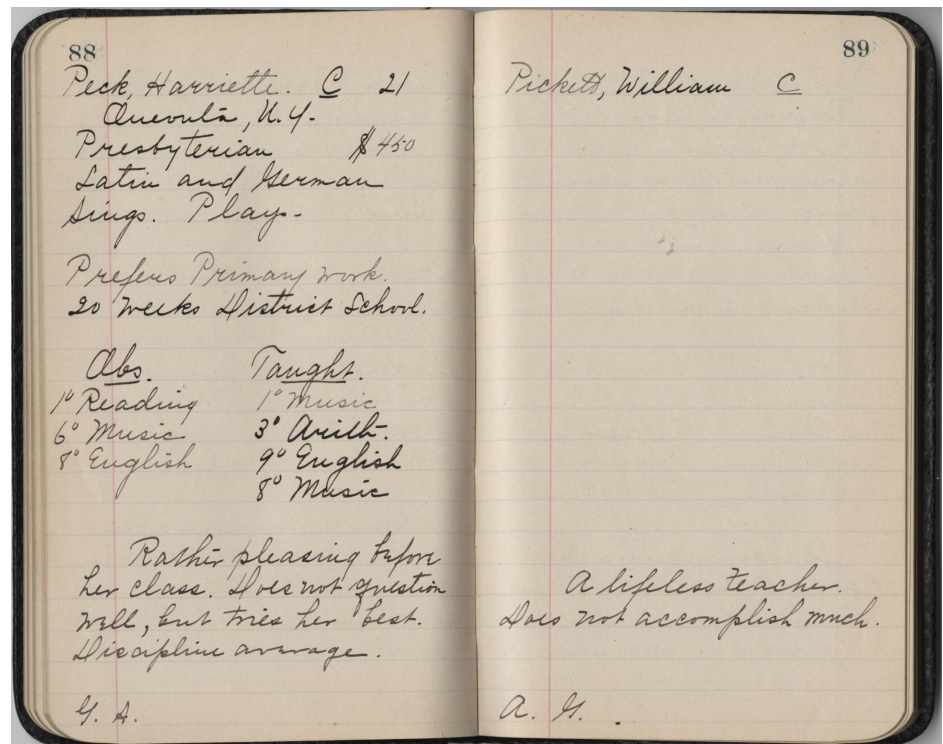 88
Peck, Harriette. C 21
Oneonta, N.Y.
Presbyterian $450
Latin and German
Sings. Plays-
Prefers Primary work.
20 weeks District School.
Obs. Taught.
1° Reading 1° Music
6° Music 3° Arith.
8° English 9° English
8° Music
Rather pleasing before
her class. Does not question
well, but tries her best.
Discipline average.
G. A.
89
Pickett, William C
A lifeless teacher.
Does not accomplish much.
A. G.